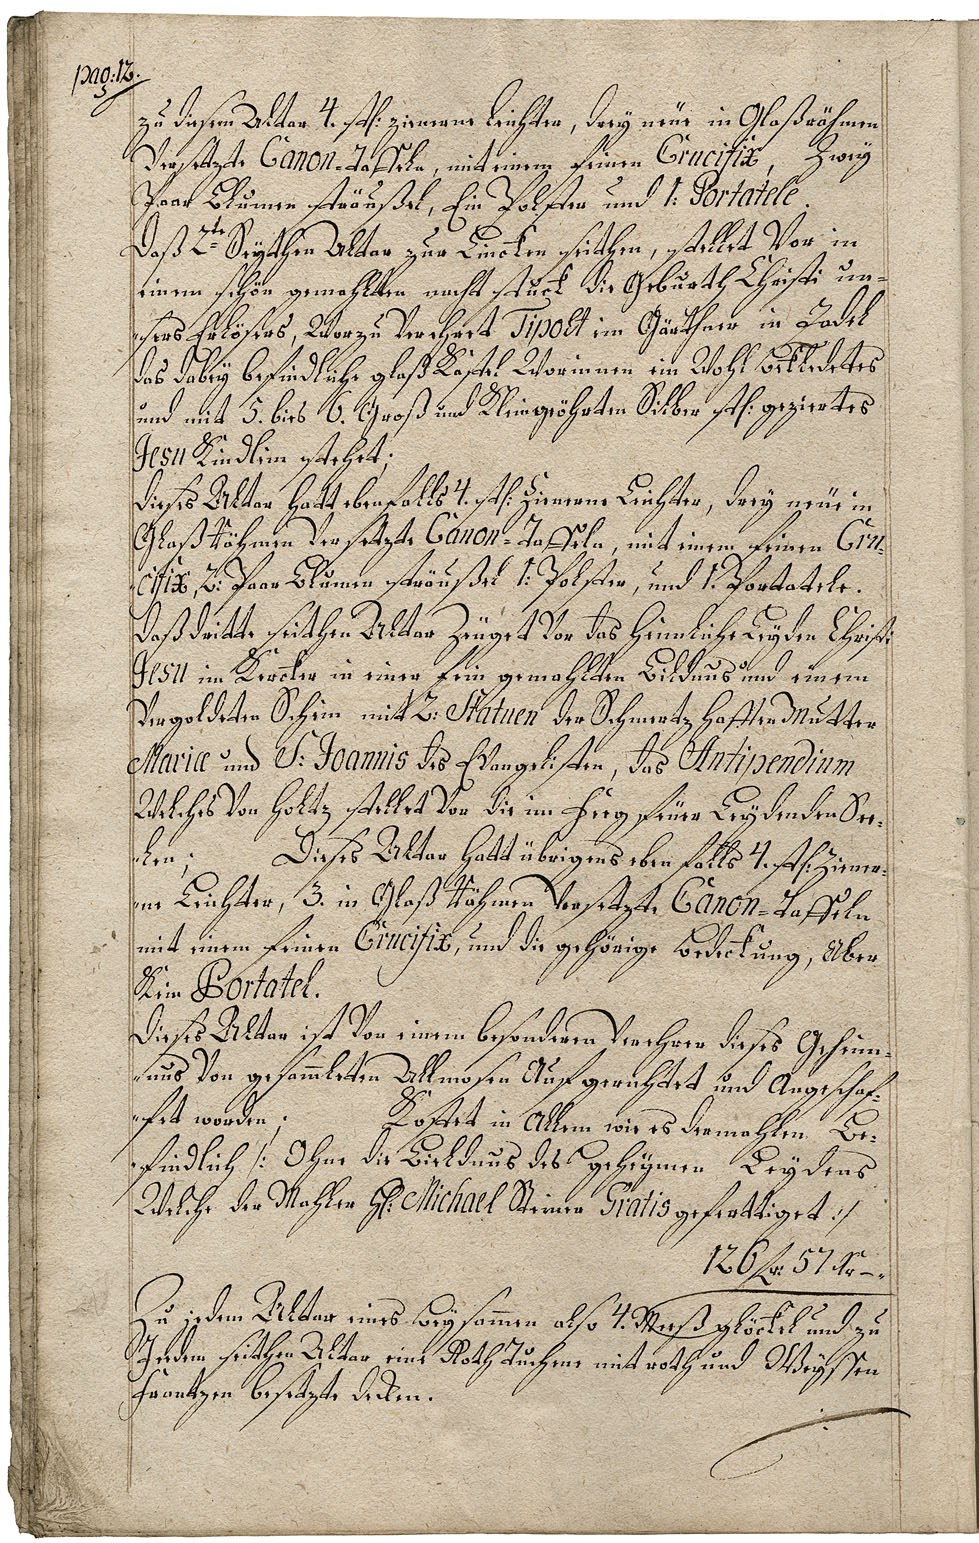 pag: 12.
zu diesem Altar 4. stk: zinnerne Leichter, dreÿ neüe in Glaßrähmen
Versetzte Canon=Taffeln, mit einem feinen Crucifix, Zweÿ
Paar Blumen sträußel, Ein Polster und 1: Portatele.
Daß 2te Seÿthen Altar zur Lincken seithen, stellet Vor in
einem schön gemahlten nacht stuck die Geburth Christi un=
=sers Erlösers, Worzu Verehret Tipolt im Gärthner in Zodel
das dabeÿ befindliche glaß Kästel Worinnen ein Wohl bekledetes
und mit 5. bies 6. Groß und Klein Silber stk: geziertes
Jesu Kindlein stehet;
Dieses Altar hatt ebenfalls 4. stk: Zinnerne Leichter, dreÿ neüe in
Glaß Rähmen Versetzte Canon=Taffeln, mit einem feinen Cru=
=cifix, 2: Paar Blumen sträußel 1: Polster, und 1. Portatele.
Daß dritte seithen Altar Zeüget Vor das Heimliche Leÿden Christi
Jesu im Kercker in einer fein gemahlten Bildnus und einem
Vergoldeten Schein mit 2: Statuen der Schmertzhafften Mutter
Mariæ und S: Joannis des Evangelisten, das Antipendium
Welches Von Holtz stellet Vor die im Feegfeüer Leÿdenden See=
=len; Dieses Altar hatt übrigens ebenfalls 4. stk: Zinner=
=ne Leichter, 3. in Glaß Rähmen Versetzte Canon=Taffeln
mit einem feinen Crucifix, und die gehörige bedeckung, Aber
Kein Portatel.
Dieses Altar ist Von einem besonderen Verehrer dieses Geheim=
=nus Von gesammleten Allmosen Aufgerichtet und Angeschaf=
=fet worden; Kostet in Allem wie es dermahlen Be=
=findlich /: Ohne die Bieldnus des geheÿmen Leÿdens
Welche der Mahler H: Michael Steiner Gratis gefertiget :/
126 fl: 57 kr —.
Zu jedem Altar eines beÿsamen also 4. Meeß glöckel und zu
Jedem seithen Altar eine Roth Tuchene mit roth und Weÿssen
Frantzen besetzte decken.